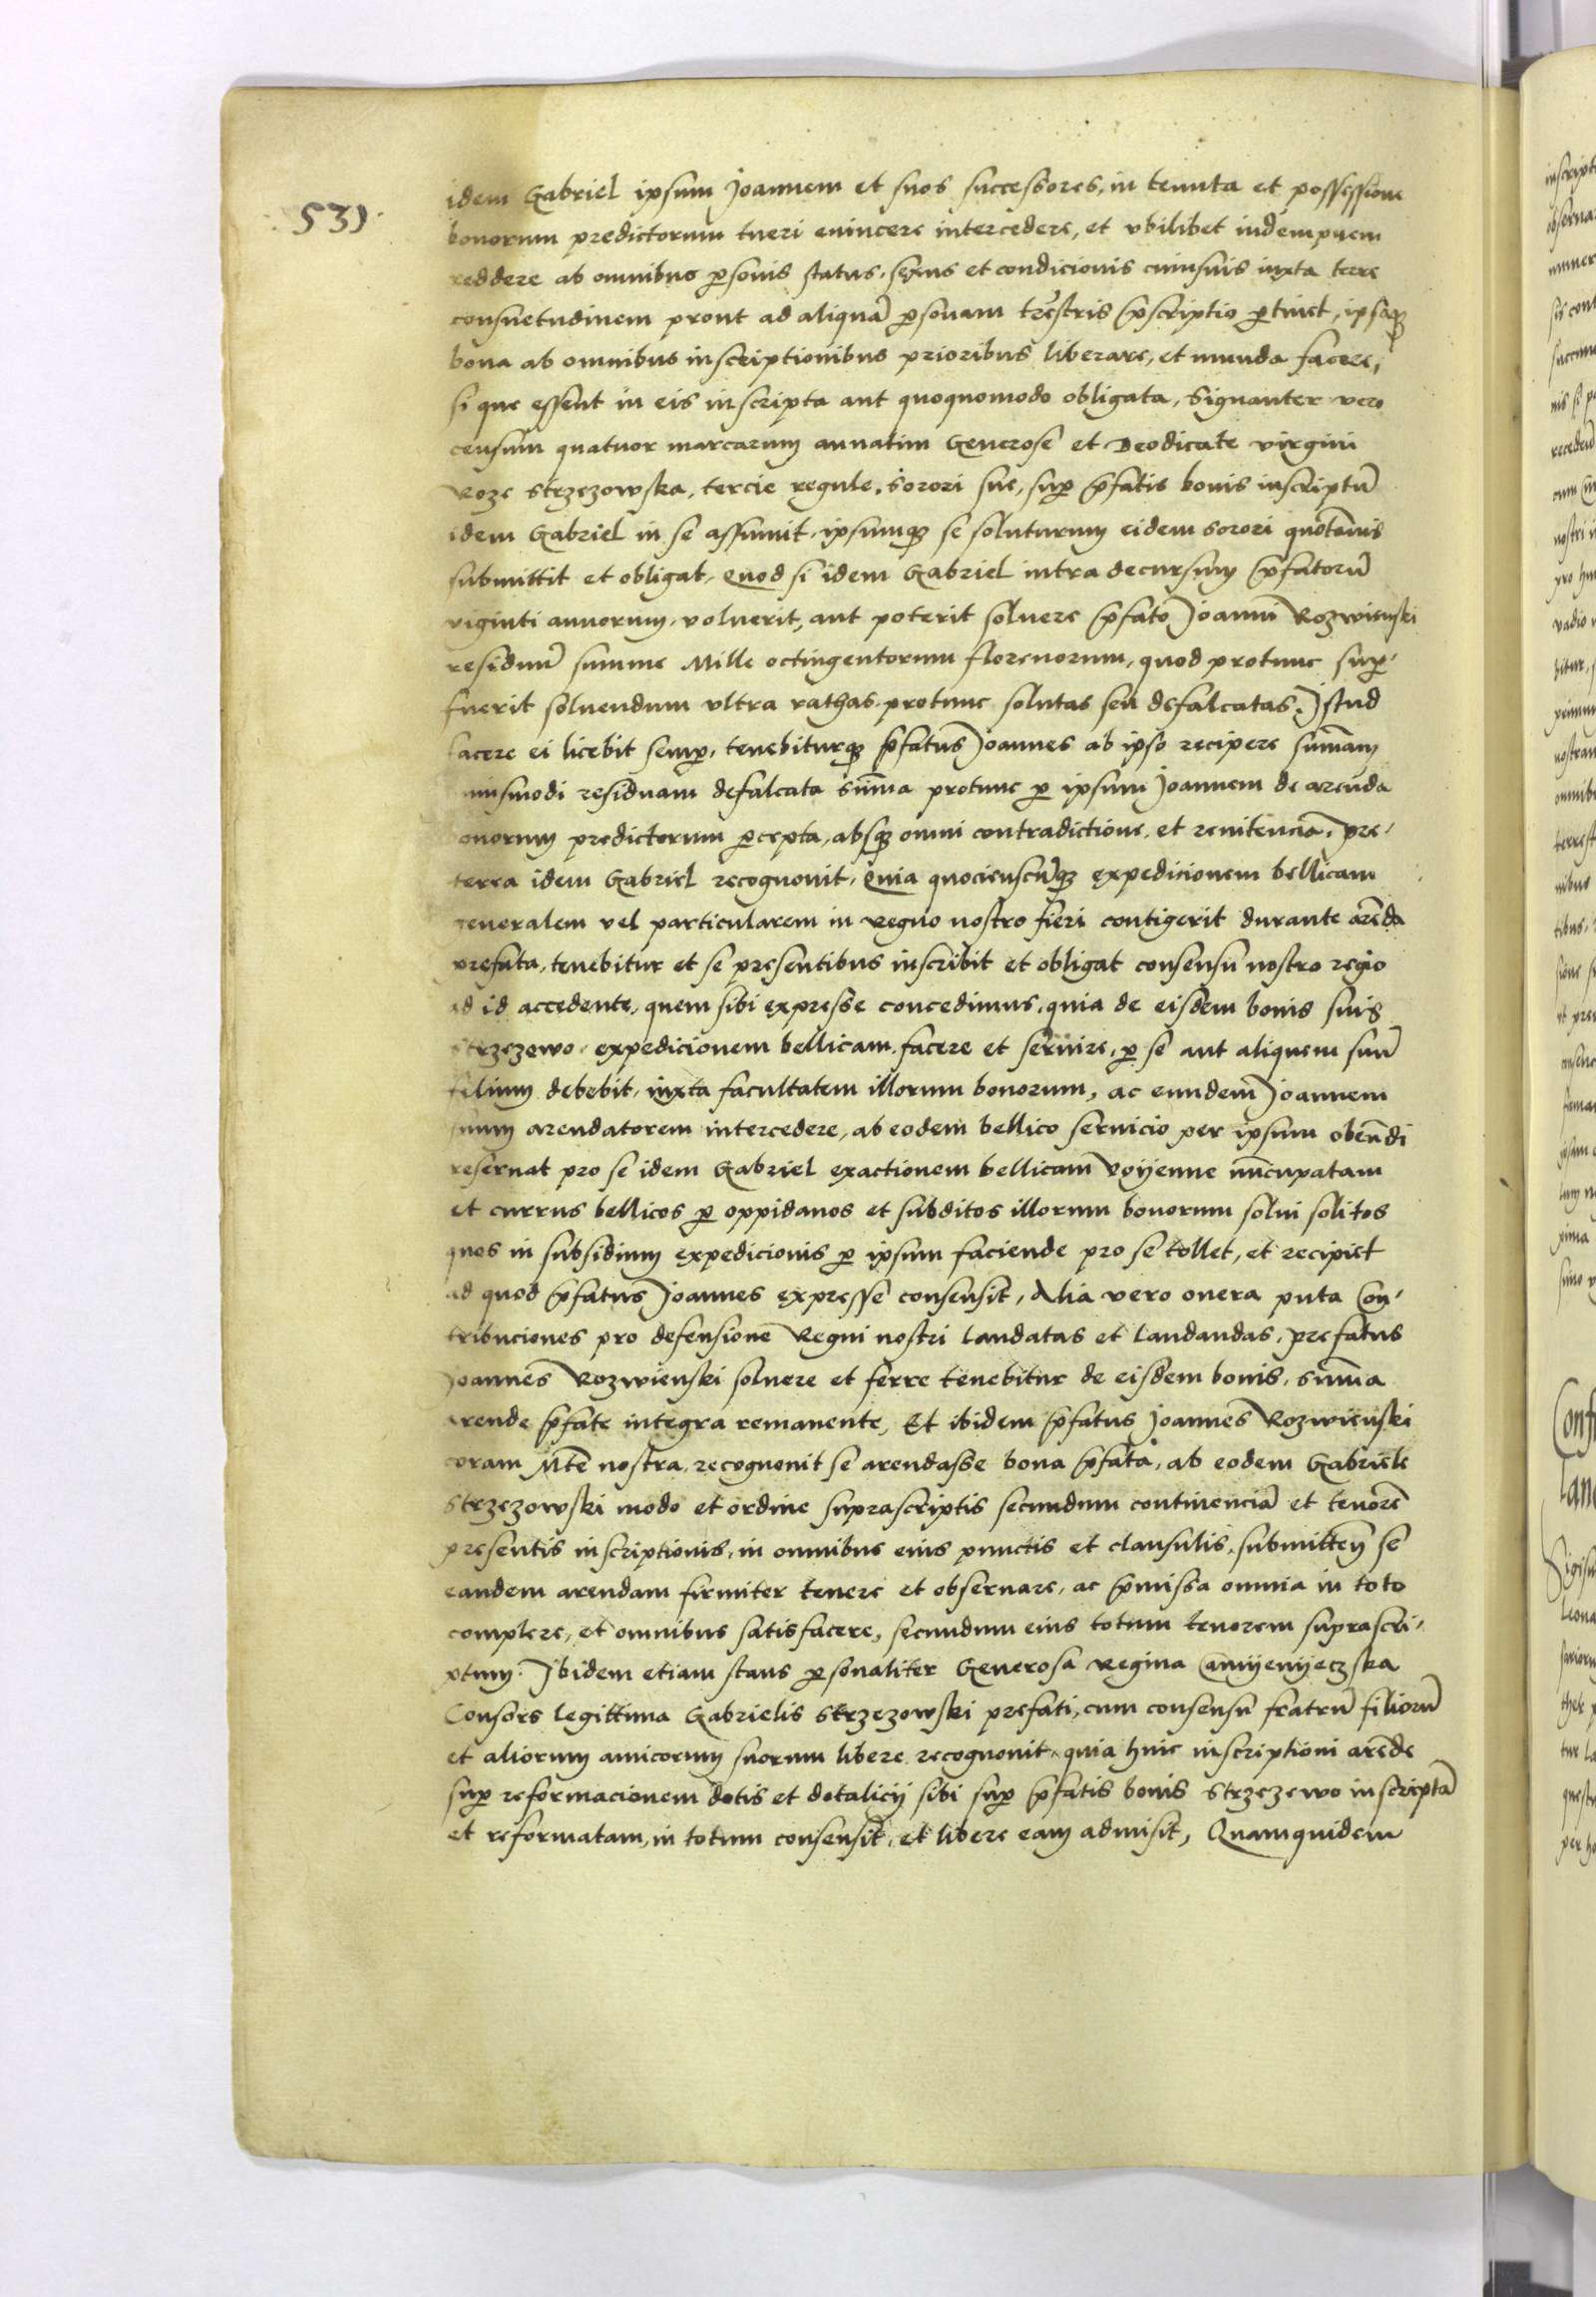 531
idem Gabriel ipsum Joannem et suos successores, in tenuta et possessione
bonorum predictorum tueri evincere intercedere, et vbilibet indempnem
reddere ab omnibus p̱sonis status, sexus et condicionis cuiusuis iuxta terre
consuetudinem prout ad aliquā p̱sonam tr̄estris p̄scriptio p̱tinet, ipsaqꝫ
bona ab omnibus inscriptionibus prioribus liberare, et munda facere,
si que essent in eis inscripta aut quoquomodo obligata, Signanter vero
censum quatuor marcarum annatim Generose et Deodicate virgini
Roze Strzezowska, tercie regule, Sorori sue, suꝑ p̄fatis bonis inscriptū
idem Gabriel in se assumit, ipsumqꝫ se soluturum eidem sorori quotēnis
submittit et obligat, Quod si idem Gabriel intra decursum p̄fatorū
viginti annorum, voluerit, aut poterit soluere p̄fato Joanni Rozwienski
residuū summe Mille octingentorum florenorum, quod protunc suꝑ-
fuerit soluendum vltra rathas protunc solutas seu defalcatas, Istud
facere ei licebit semꝑ, tenebiturqꝫ p̄fatus Joannes ab ipso recipere sum̄am
uiusmodi residuam defalcata sum̄a protunc ꝑ ipsum Joannem de arenda
onorum predictorum ꝑcepta, absqꝫ omni contradictione, et renitencia, pre-
terea idem Gabriel recognouit, Quia quocienscūqꝫ expedicionem bellicam
generalem vel particularem in Regno nostro fieri contigerit durante arēda
prefata, tenebitur et se presentibus inscribit et obligat consensu nostro regio
ad id accedente, quem sibi expresse concedimus, quia de eisdem bonis suis
Strzezewo expedicionem bellicam facere et seruire, ꝑ se aut aliquem suū
filium debebit, iuxta facultatem illorum bonorum, ac eundem Joannem
suum arendatorem intercedere, ab eodem bellico seruicio per ipsum obeūdi
reseruat pro se idem Gabriel exactionem bellicam Voyenne nūcupatam
et currus bellicos ꝑ oppidanos et subditos illorum bonorum solui solitos
quos in subsidium expedicionis ꝑ ipsum faciende pro se tollet, et recipiet
ad quod p̄fatus Joannes expresse consensit, Alia vero onera puta Con-
tribuciones pro defensione Regni nostri laudatas et laudandas, prefatus
Joannes Rozwienski soluere et ferre tenebitur de eisdem bonis, sum̄a
arende p̄fate integra remanente, Et ibidem p̄fatus Joannes Rozwienski
coram Mt̄e nostra, recognouit se arendasse bona p̄fata, ab eodem Gabriele
Strzezowski modo et ordine suprascriptis secundum continenciā et tenorē
presentis inscriptionis, in omnibus eius punctis et clausulis, submitteñ se
eandem arendam firmiter tenere et obseruare, ac p̄missa omnia in toto
complere, et omnibus satisfacere, secundum eius totum tenorem suprascri-
ptum. Ibidem etiam stans ꝑsonaliter Generosa Regina Camyenyeczska
Consors legittima Gabrielis Strzezowski prefati, cum consensu fratrū filiorū
et aliorum amicorum suorum libere recognouit, quia huic inscriptioni arēde
suꝑ reformacionem dotis et dotalicij sibi suꝑ p̄fatis bonis Strzezewo inscriptā
et reformatam, in totum consensit, et libere eam admisit, Quamquidem